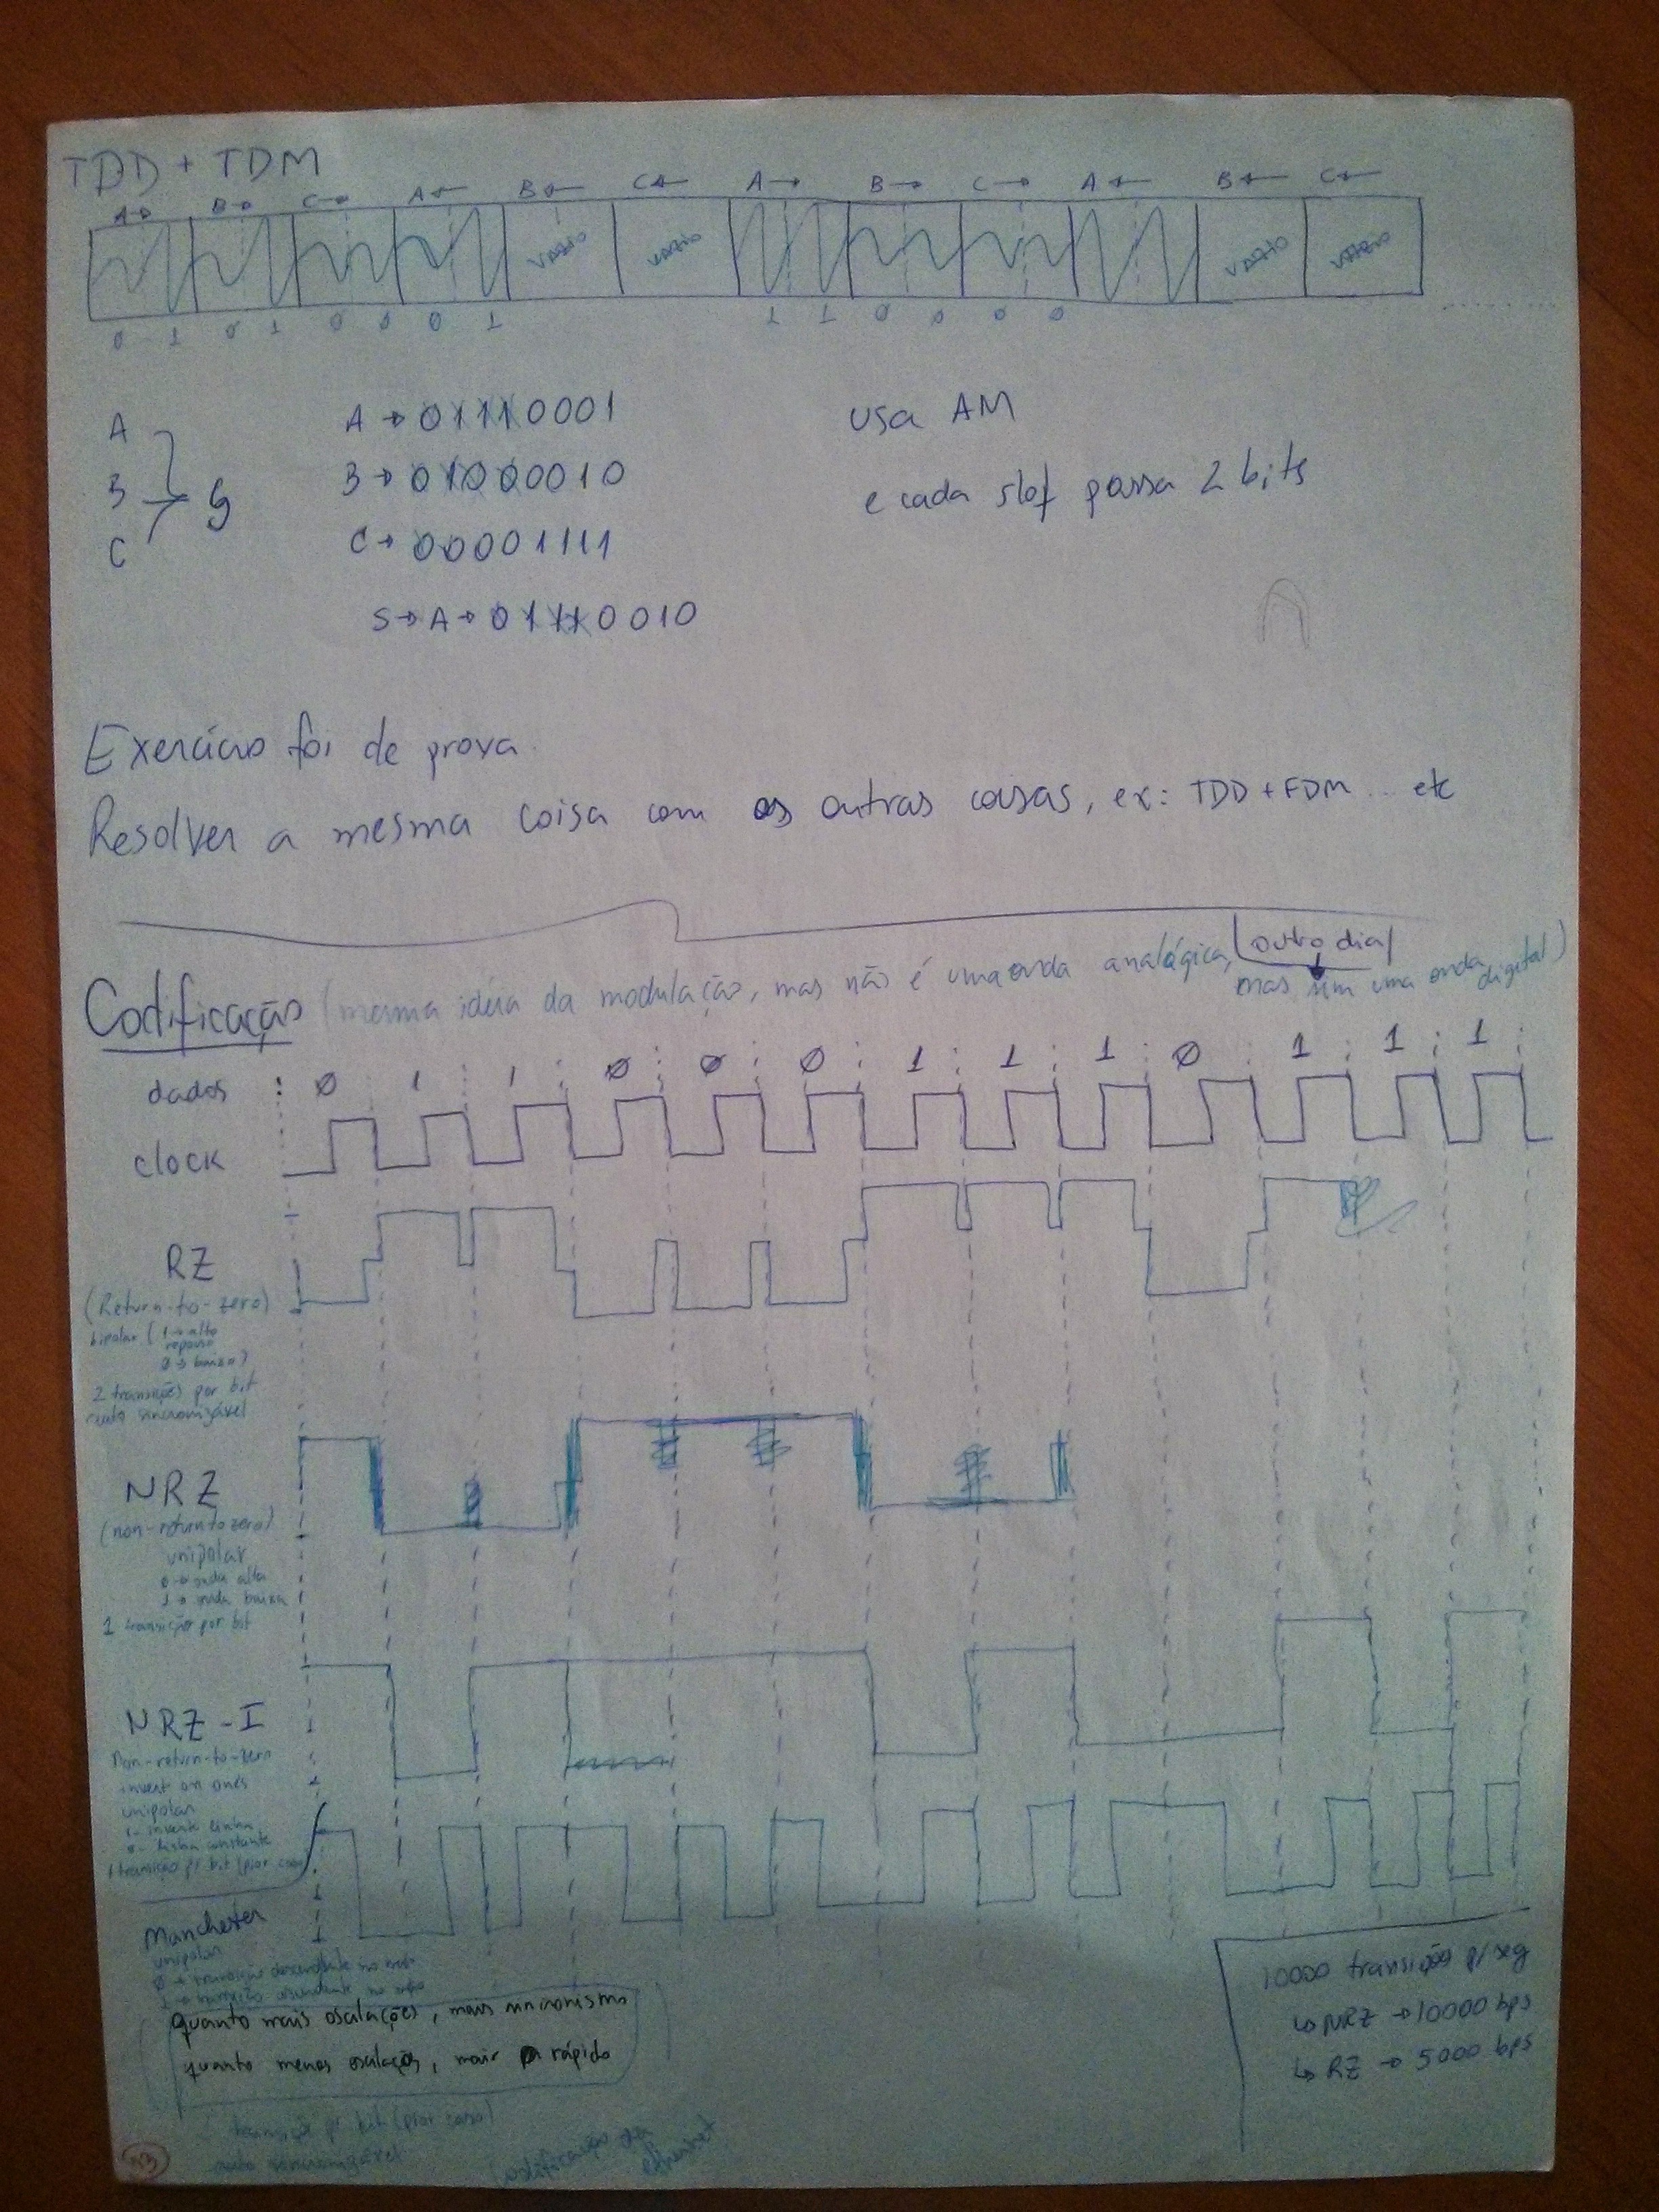 TDD + TDM
A→ B→ C→ A← B← C← A→ B→ C→ A← B← C←
VAZIO VAZIO VAZIO VAZIO
0 1 0 1 0 0 0 1 1 1 0 0 0 0
A
B
C
S
A → 01110001
B → 01000010
C → 00001111
S → A → 01110010
usa AM
e cada slot passa 2 bits
Exercício foi de prova.
Resolver a mesma coisa com as outras coisas, ex: TDD + FDM ... etc
outro dia
Codificação (mesma idéia da modulação, mas não é uma onda analógica, mas sim uma onda digital)
dados 0 1 1 0 0 0 1 1 1 0 1 1 1
clock
RZ
(Return-to-zero)
bipolar (1→ alto
repouso
0→ baixo)
2 transições por bit
auto sincronizável
NRZ
(non-return to zero)
unipolar
0→ onda alta
1→ onda baixa
1 transição por bit
NRZ-I
Non-return-to-zero
invert on ones
unipolar
1- inverte linha
0- linha constante
1 transição p/ bit (pior caso)
Manchester
unipolar
0→ transição descendente no meio
1→ transição ascendente no meio
quanto mais oscilações, mais sincronismo
quanto menos oscilações, mais rápido
transição p/ bit (pior caso)
auto sincronizável
codificação da
ethernet
10000 transições p/ seg
↳ NRZ → 10000 bps
↳ RZ → 5000 bps